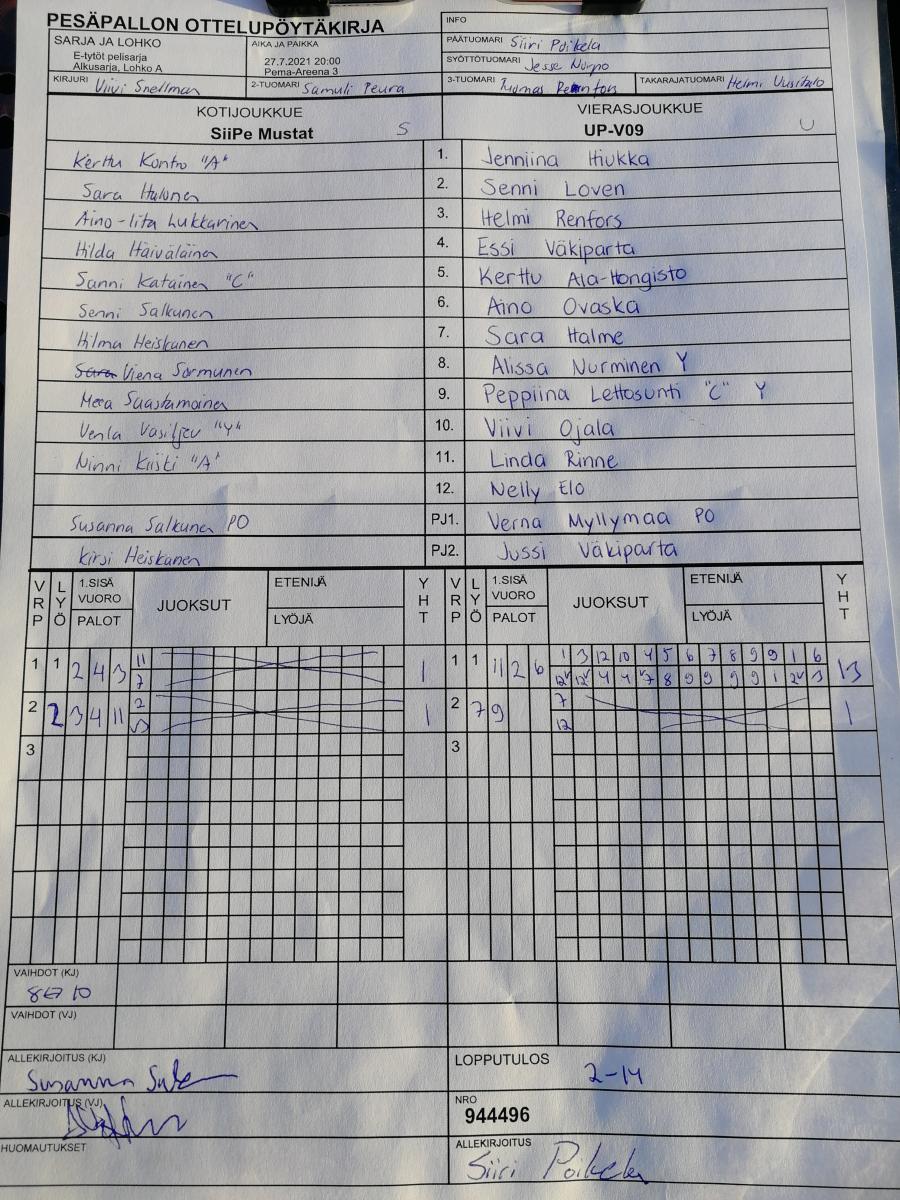 PESÄPALLON OTTELUPÖYTÄKIRJA
INFO
SARJA JA LOHKO
E-tytöt pelisarja
Alkusarja, Lohko A
AIKA JA PAIKKA
27.7.2021 20:00
Pema-Areena 3
PÄÄTUOMARI Siiri Poikela
SYÖTTÖTUOMARI Jesse Nurpo
KIRJURI Viivi Snellman
2-TUOMARI Samuli Peura
3-TUOMARI Tuomas
TAKARAJATUOMARI Helmi Uusitalo
KOTIJOUKKUE
SiiPe Mustat S
VIERASJOUKKUE
UP-V09 U
Kerttu Kontro "A" 1. Jenniina Hiukka
Sara Halonen 2. Senni Loven
Aino-Iita Lukkarinen 3. Helmi Renfors
Hilda Häiväläinen 4. Essi Väkiparta
Sanni Katainen "C" 5. Kerttu Ala-Hongisto
Senni Salkunen 6. Aino Ovaska
Hilma Heiskanen 7. Sara Halme
Sara Viena Sormunen 8. Alissa Nurminen Y
Meea Suastamoinen 9. Peppiina Lettosunti "C" Y
Venla Vasiljev "Y" 10. Viivi Ojala
Ninni Kiiski "A" 11. Linda Rinne
12. Nelly Elo
Susanna Salkunen PO PJ1. Verna Myllymaa PO
Kirsi Heiskanen PJ2. Jussi Väkiparta
VRP LYÖ 1.SISÄ VUORO PALOT JUOKSUT ETENIJÄ LYÖJÄ YHT
VRP LYÖ 1.SISÄ VUORO PALOT JUOKSUT ETENIJÄ LYÖJÄ YHT
1 1 2 4 3 11 1
7
1 1 11 2 6 1 3 12 10 4 5 6 7 8 9 9 1 6 13
12V 12V 4 4 V7 8 9 9 9 9 1 2V 3
2 2 3 4 11 2 1
V3
2 7 9 7 1
12
3
3
VAIHDOT (KJ)
8 10
VAIHDOT (VJ)
ALLEKIRJOITUS (KJ)
Susanna
LOPPUTULOS
2-14
ALLEKIRJOITUS (VJ)
NRO
944496
HUOMAUTUKSET
ALLEKIRJOITUS
Siiri Poikela